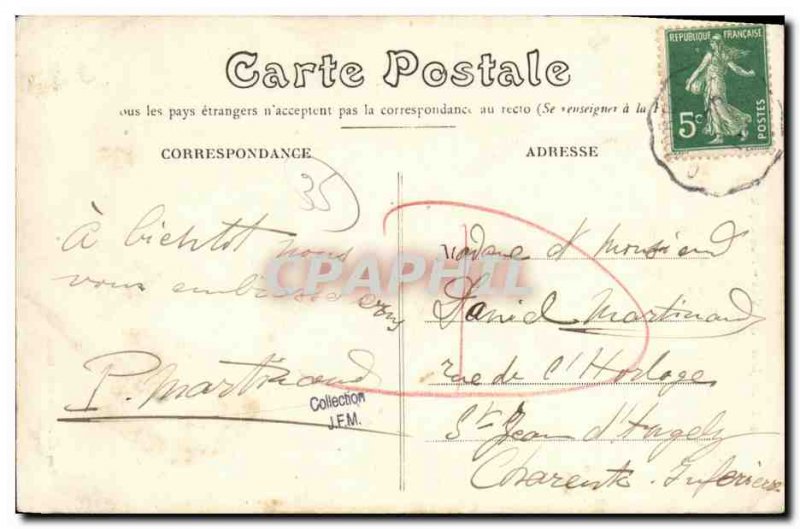 REPUBLIQUE FRANÇAISE
5c
POSTES
Carte Postale
ous les pays étrangers n'acceptent pas la correspondance au recto (Se renseigner à la
CORRESPONDANCE
ADRESSE
35
à bientôt nous
vous embrassons
P. Martinaud
Collection
J.F.M.
CPAPHIL
Madme et Monsieur
Daniel Martinaud
rue de l'Horloge
St Jean d'Angely
Charente Inferieure